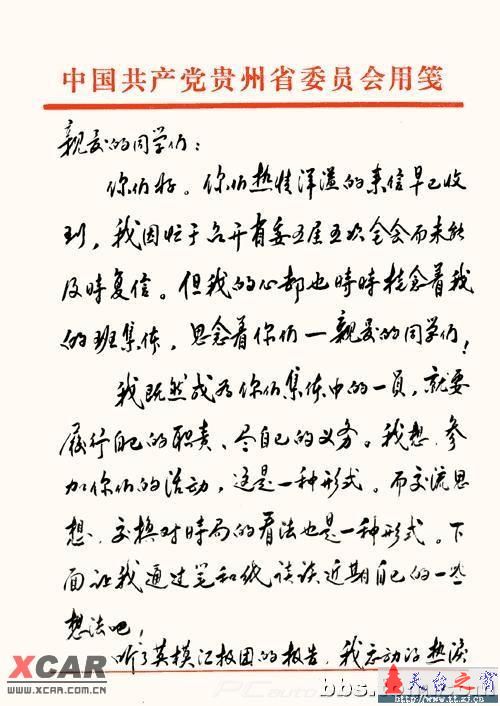 中国共产党贵州省委员会用笺
亲爱的同学们：
你们好。你们热情洋溢的来信早已收
到，我因忙于召开省委五届五次全会而未能
及时复信。但我的心却也時時挂念着我
的班集体，思念着你们—亲爱的同学们！
我既然成为你们集体中的一员，就要
履行自己的职责、尽自己的义务。我想，参
加你们的活动，这是一种形式。而交流思
想、交换对時局的看法也是一种形式。下
面让我通过笔和纸谈谈近期自己的一些
想法吧！
听了英模汇报团的报告，我忘动的热泪
XCAR
WWW.XCAR.COM.CN
PCauto
bbs.
天台之窗
http://www.ttzj.cn